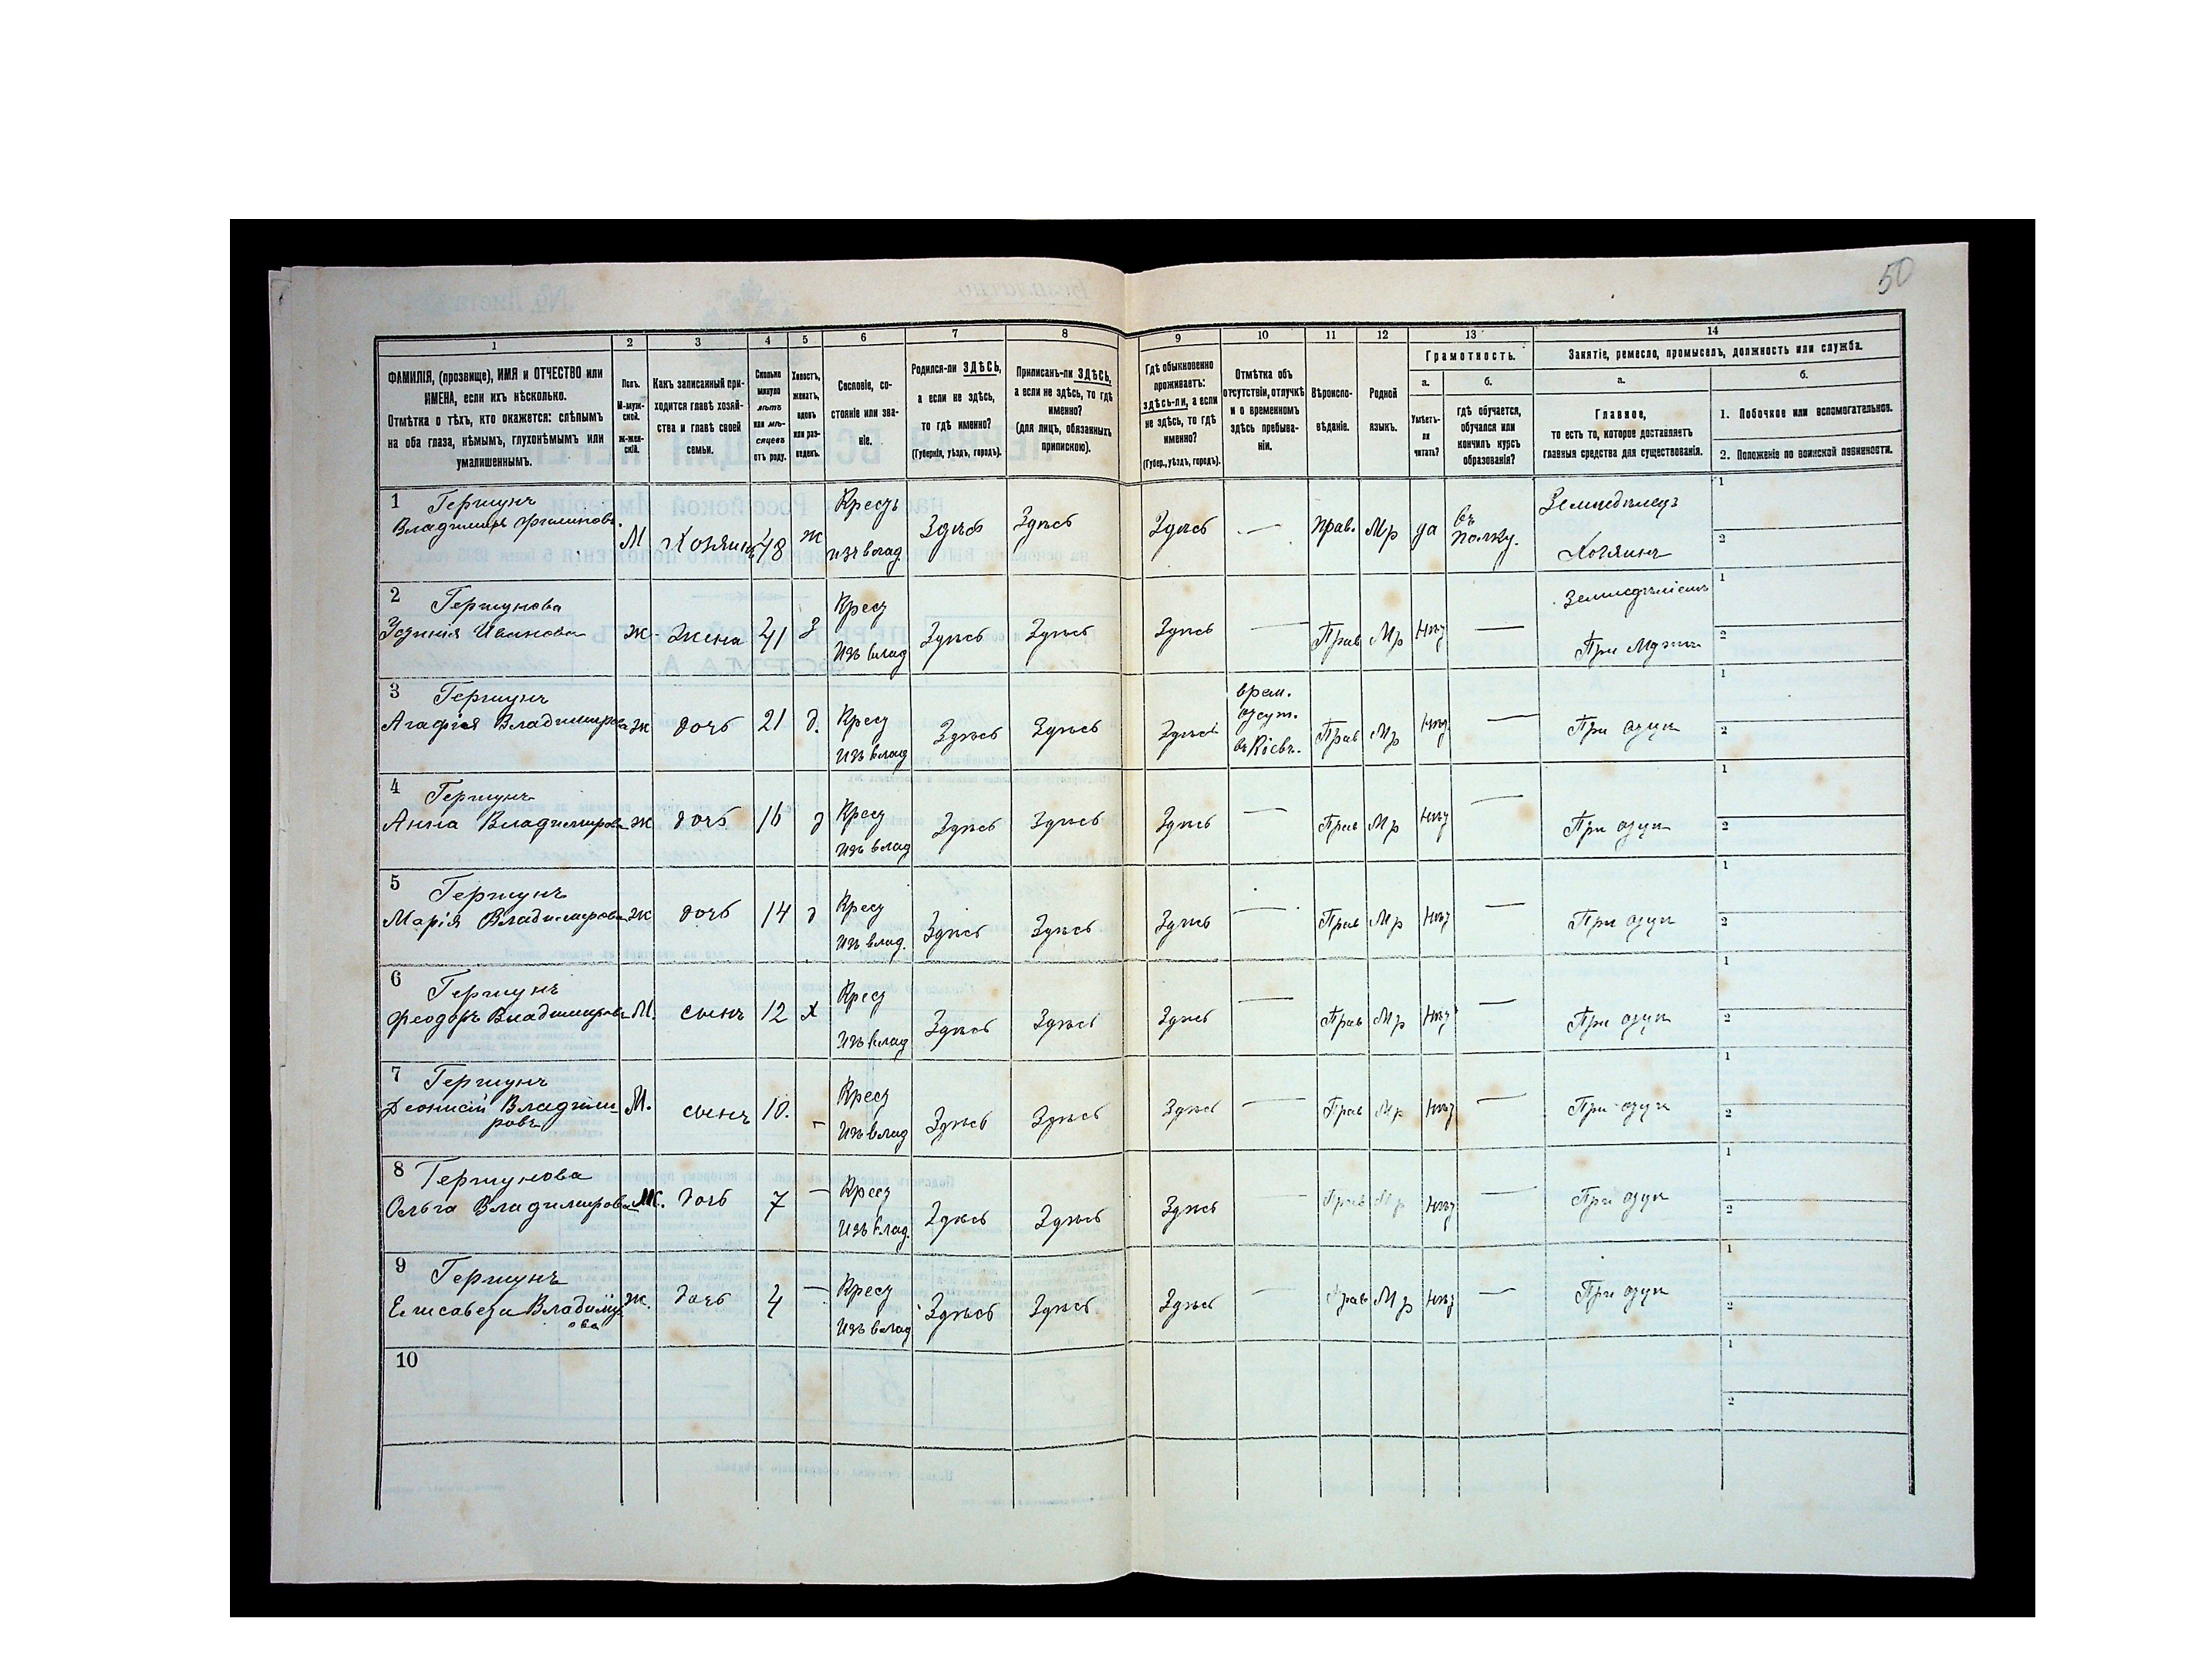 50
1 2 3 4 5 6 7 8 9 10 11 12 13 14
ФАМИЛІЯ, (прозвище), ИМЯ и ОТЧЕСТВО или
ИМЕНА, если ихъ нѣсколько.
Отмѣтка о тѣхъ, кто окажется: слѣпымъ
на оба глаза, нѣмымъ, глухонѣмымъ или
умалишеннымъ.
Полъ.
М-муж-
ской.
Ж-жен-
скій.
Какъ записанный при-
ходится главѣ хозяй-
ства и главѣ своей
семьи.
Сколько
минуло
лѣтъ
или мѣ-
сяцевъ
отъ роду.
Холостъ,
женатъ,
вдовъ
или раз-
веденъ.
Сословіе, со-
стояніе или зва-
ніе.
Родился-ли ЗДѢСЬ,
а если не здѣсь,
то гдѣ именно?
(Губернія, уѣздъ, городъ).
Приписанъ-ли ЗДѢСЬ,
а если не здѣсь, то гдѣ
именно?
(для лицъ, обязанныхъ
припискою).
Гдѣ обыкновенно
проживаетъ:
здѣсь-ли, а если
не здѣсь, то гдѣ
именно?
(Губер., уѣздъ, городъ).
Отмѣтка объ
отсутствіи, отлучкѣ
и о временномъ
здѣсь пребыва-
ніи.
Вѣроиспо-
вѣданіе.
Родной
языкъ.
Грамотность.
а.
Умѣетъ-
ли
читать?
б.
гдѣ обучается,
обучался или
кончилъ курсъ
образованія?
Занятіе, ремесло, промыселъ, должность или служба.
а.
Главное,
то есть то, которое доставляетъ
главныя средства для существованія.
б.
1. Побочное или вспомогательное.
2. Положеніе по воинской повинности.
1 Гершунъ
Владиміръ Филиповъ М Хозяинъ 48 ж Крест изъ влад Здѣсь Здѣсь Здѣсь — Прав. Мр да въ полку. Земледѣлецъ Хозяинъ 1 2
2 Гершунова
Ивановна ж жена 41 З Крест Изъ влад Здѣсь Здѣсь Здѣсь — Прав Мр Нѣт — При мужѣ 1 2
3 Гершунъ
Агафія Владимирова ж дочь 21 д. Крест Изъ влад Здѣсь Здѣсь Здѣсь врем. отсут. въ Кіевѣ. Прав Мр Нѣт — При отцѣ 1 2
4 Гершунъ
Анна Владимирова ж дочь 16 д Крест Изъ влад Здѣсь Здѣсь Здѣсь — Прав Мр Нѣт — При отцѣ 1 2
5 Гершунъ
Марія Владимирова ж дочь 14 д Крест Изъ влад. Здѣсь Здѣсь Здѣсь — Прав Мр Нѣт — При отцѣ 1 2
6 Гершунъ
Феодоръ Владимировъ М. сынъ 12 х Крест Изъ влад Здѣсь Здѣсь Здѣсь — Прав Мр Нѣт — При отцѣ 1 2
7 Гершунъ
Деонисій Владими
ровъ М. сынъ 10. — Крест Изъ влад Здѣсь Здѣсь Здѣсь — Прав Мр Нѣт — При отцѣ 1 2
8 Гершунова
Ольга Владимирова Ж. дочь 7 — Крест Изъ влад. Здѣсь Здѣсь Здѣсь — Прав Мр Нѣт — При отцѣ 1 2
9 Гершунъ
Елисавета Владимір
ова ж. дочь 4 — Крест Изъ влад Здѣсь Здѣсь Здѣсь — Прав Мр Нѣт — При отцѣ 1 2
10 1 2